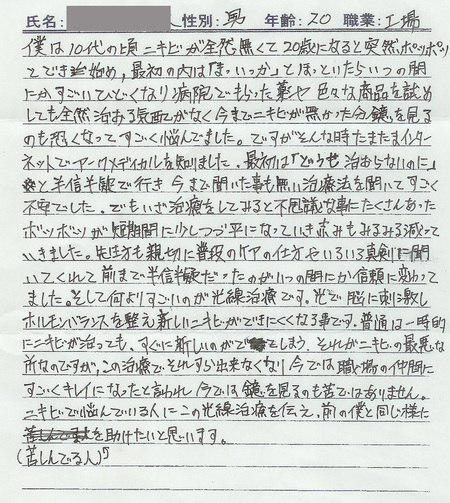 氏名: 性別: 男 年齢: 20 職業: 工場
僕は10代の頃ニキビが全然無くて20歳になると突然、ポツポツ
とでき始め、最初の内は「まっいっか」とほっといたらいつの間
にかすごいひどくなり病院でもらった薬や色々な商品を試め
しても全然治る気配がなく今までニキビが無かった分鏡を見る
のも恐くなってすごく悩んでました。ですがそんな時たまたまインター
ネットでアークメディカルを知りました。最初は「どうせ治おらないのに」
と半信半疑で行き今まで聞いた事も無い治療法を聞いてすごく
不安でした。でもいざ治療をしてみると不思議な事にたくさんあった
ボツボツが短期間に少しづつ平になっていき赤みもみるみる減って
いきました。先生方も親切に普段のケアの仕方やいろいろ真剣に聞
いてくれて前まで半信半疑だったのがいつの間にか信頼に変わって
ました。そして何よりすごいのが光線治療です。光で脳に刺激し
ホルモンバランスを整え新しいニキビができにくくなる事です。普通は一時的
にニキビが治っても、すぐに新しいのができてしまう、それがニキビの最悪な
所なのですが、この治療で、それすら出来なくなり今では職場の仲間に
すごくキレイになったと言われ今では鏡を見るのも苦ではありません。
ニキビで悩んでいる人にこの光線治療を伝え、前の僕と同じ様に
を助けたいと思います。
(苦しんでる人)